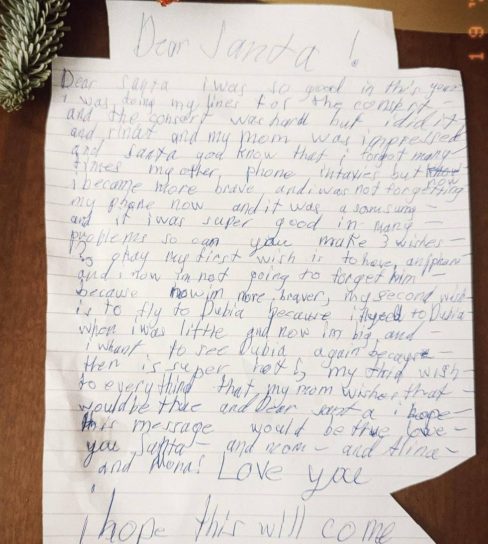 Dear Santa !
Dear santa i was so good in this year
i was doing my lines for the consert -
and the consert was hard but i did it
and and my mom was impressed
and santa you know that i forgot many
times my other phone in taxies but
now
i became more brave, and i was not forgetting
my phone now and it was a somsung
and it i was super good in many -
problems so can you make 3 wishes -
okay my first wish is to have an iphone
and i now im not going to forget him -
because now im more braver, my second wish
is to fly to Dubia because i flyed to Dubia
when i was little and now im big and -
i whant to see Dubia again because -
ther is super hot, my third wish -
to everything that my mom wishes that -
would be true and Dear santa i hope -
this message would be true love -
you Santa - and mom - and Alina -
and Mona! Love you
I hope this will come